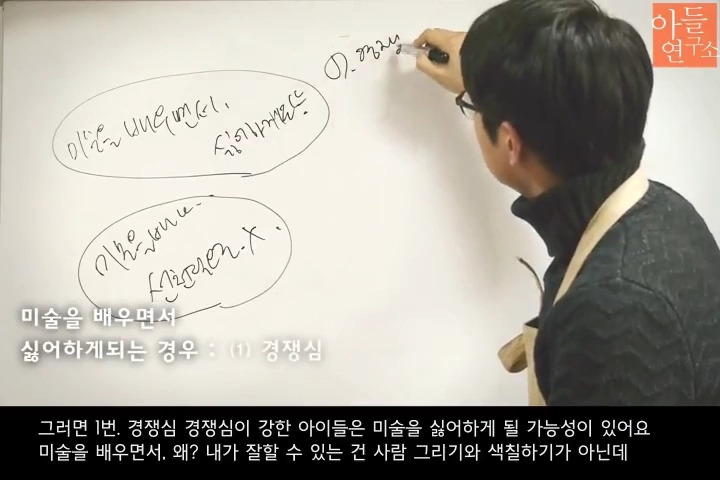 아들
연구소
미술을 배우면서
싫어하게 되는
미술을 배우
① 경쟁
미술을 배우면서
싫어하게되는 경우 : (1) 경쟁심
그러면 1번. 경쟁심 경쟁심이 강한 아이들은 미술을 싫어하게 될 가능성이 있어요
미술을 배우면서, 왜? 내가 잘할 수 있는 건 사람 그리기와 색칠하기가 아닌데